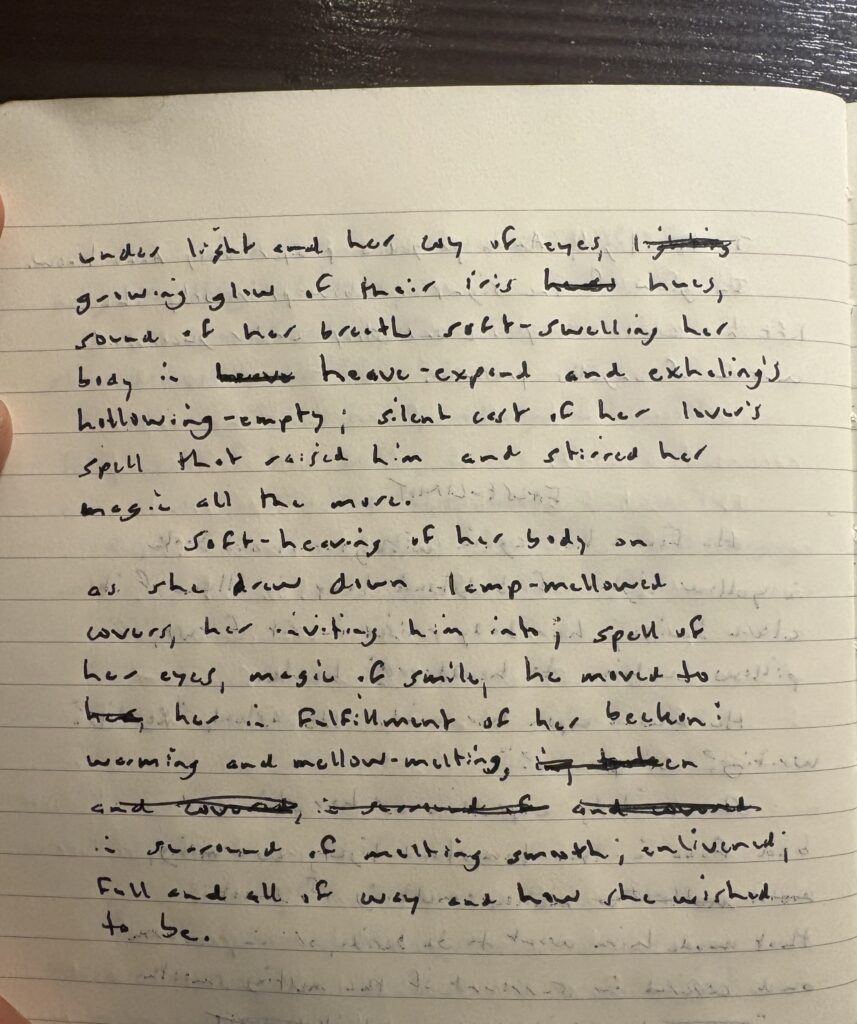 under light and her coy of eyes, lighting
growing glow of their iris hues,
sound of her breath soft-swelling her
body in heave heave-expand and exhaling's
hollowing-empty; silent cast of her lover's
spell that raised him and stirred her
magic all the more.
Soft-heaving of her body on
as she drew down lamp-mellowed
covers, her inviting him into; spell of
her eyes, magic of smile, he moved to
her, her in fulfillment of her beckon:
warming and mellow-melting,
and covered, in surround of and covered
in surround of melting smooth; enlivened;
full and all of way and how she wished
to be.